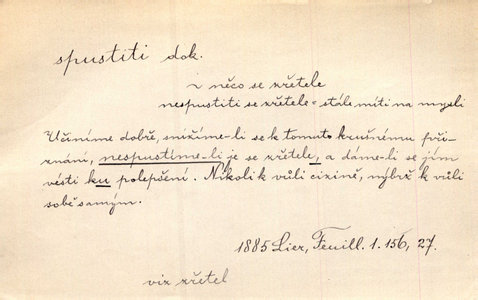 spustiti dok.
z něco se zřetele
nespustiti se zřetele = stále míti na mysli
Učiníme dobře, snížíme-li se k tomuto krušnému při-
znání, nespustíme-li je se zřetele, a dáme-li se jím
vésti ku polepšení. Nikoli k vůli cizině, nýbrž k vůli
sobě samým.
1885 Lier, Feuill. 1. 156, 27.
viz zřetel